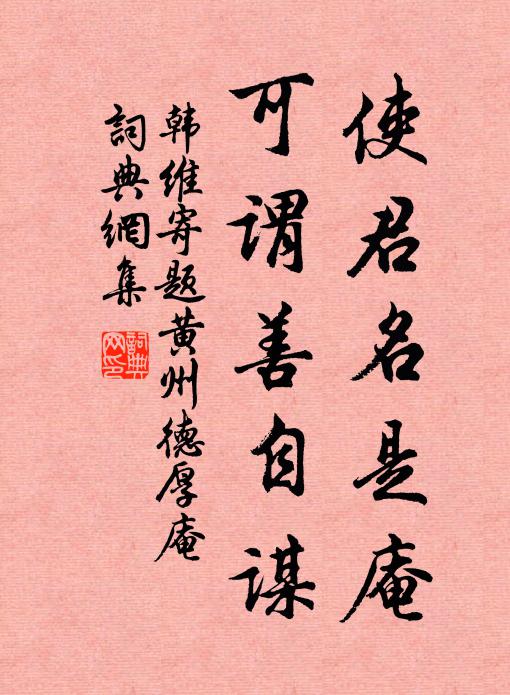 使君名是庵
可謂善自謀
韩维寄题黄州德厚庵
詞典網集
詞典网印